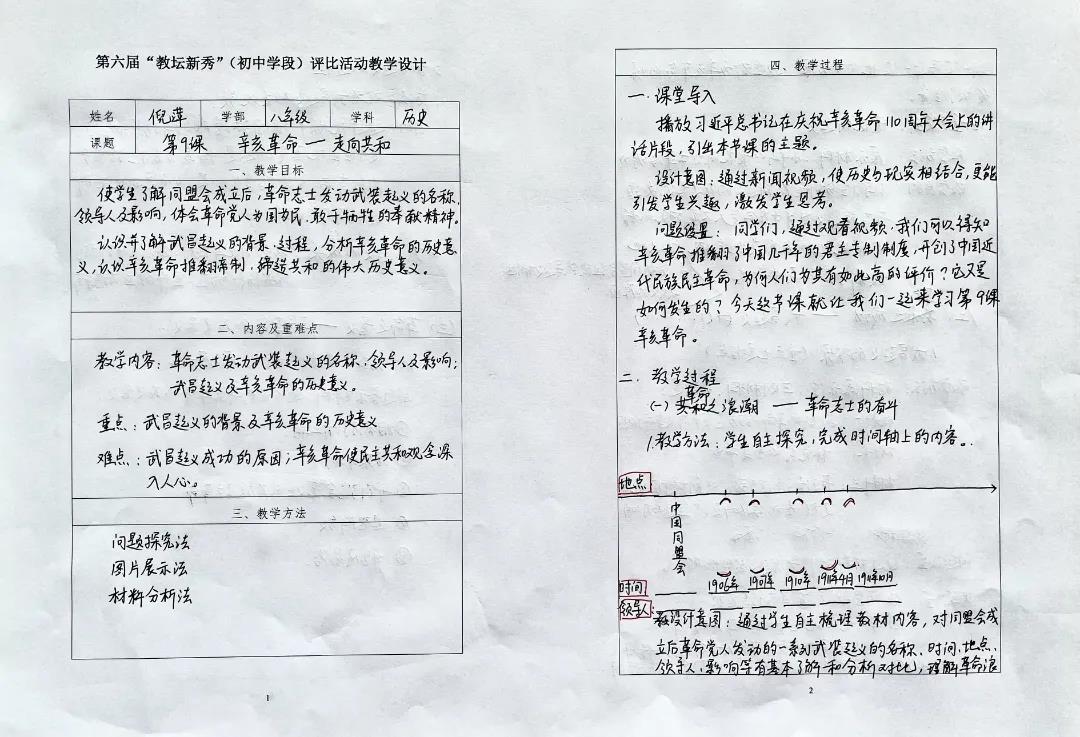 第六届“教坛新秀”（初中学段）评比活动教学设计
姓名 倪萍 学部 八年级 学科 历史
课题 第9课 辛亥革命 — 走向共和
一、教学目标
使学生了解同盟会成立后，革命志士发动武装起义的名称、
领导人及影响，体会革命党人为国为民、敢于牺牲的奉献精神。
认识并了解武昌起义的背景、过程，分析辛亥革命的历史意
义，认识辛亥革命推翻帝制、缔造共和的伟大历史意义。
二、内容及重难点
教学内容：革命志士发动武装起义的名称、领导人及影响；
武昌起义及辛亥革命的历史意义。
重点：武昌起义的背景及辛亥革命的历史意义
难点：武昌起义成功的原因；辛亥革命使民主共和观念深
入人心。
三、教学方法
问题探究法
图片展示法
材料分析法
1
四、教学过程
一．课堂导入
播放习近平总书记在庆祝辛亥革命110周年大会上的讲
话片段，引出本节课的主题。
设计意图：通过新闻视频，使历史与现实相结合，更能
引发学生兴趣，激发学生思考。
问题设置：同学们，通过观看视频，我们可以得知
辛亥革命推翻了中国几千年的君主专制制度，开创了中国近
代民族民主革命，为何人们为其有如此高的评价？它又是
如何发生的？今天这节课就让我们一起来学习第9课
辛亥革命。
二．教学过程
革命
（一）共和之浪潮 —— 革命志士的奋斗
1.教学方法：学生自主探究，完成时间轴上的内容。
地点
中国同盟会
时间 1906年 1907年 1910年 1911年4月 1911年10月
领导人
设计意图：通过学生自主梳理教材内容，对同盟会成
立后革命党人发动的一系列武装起义的名称、时间、地点、
领导人、影响等有基本了解和分析对比，理解革命浪
2